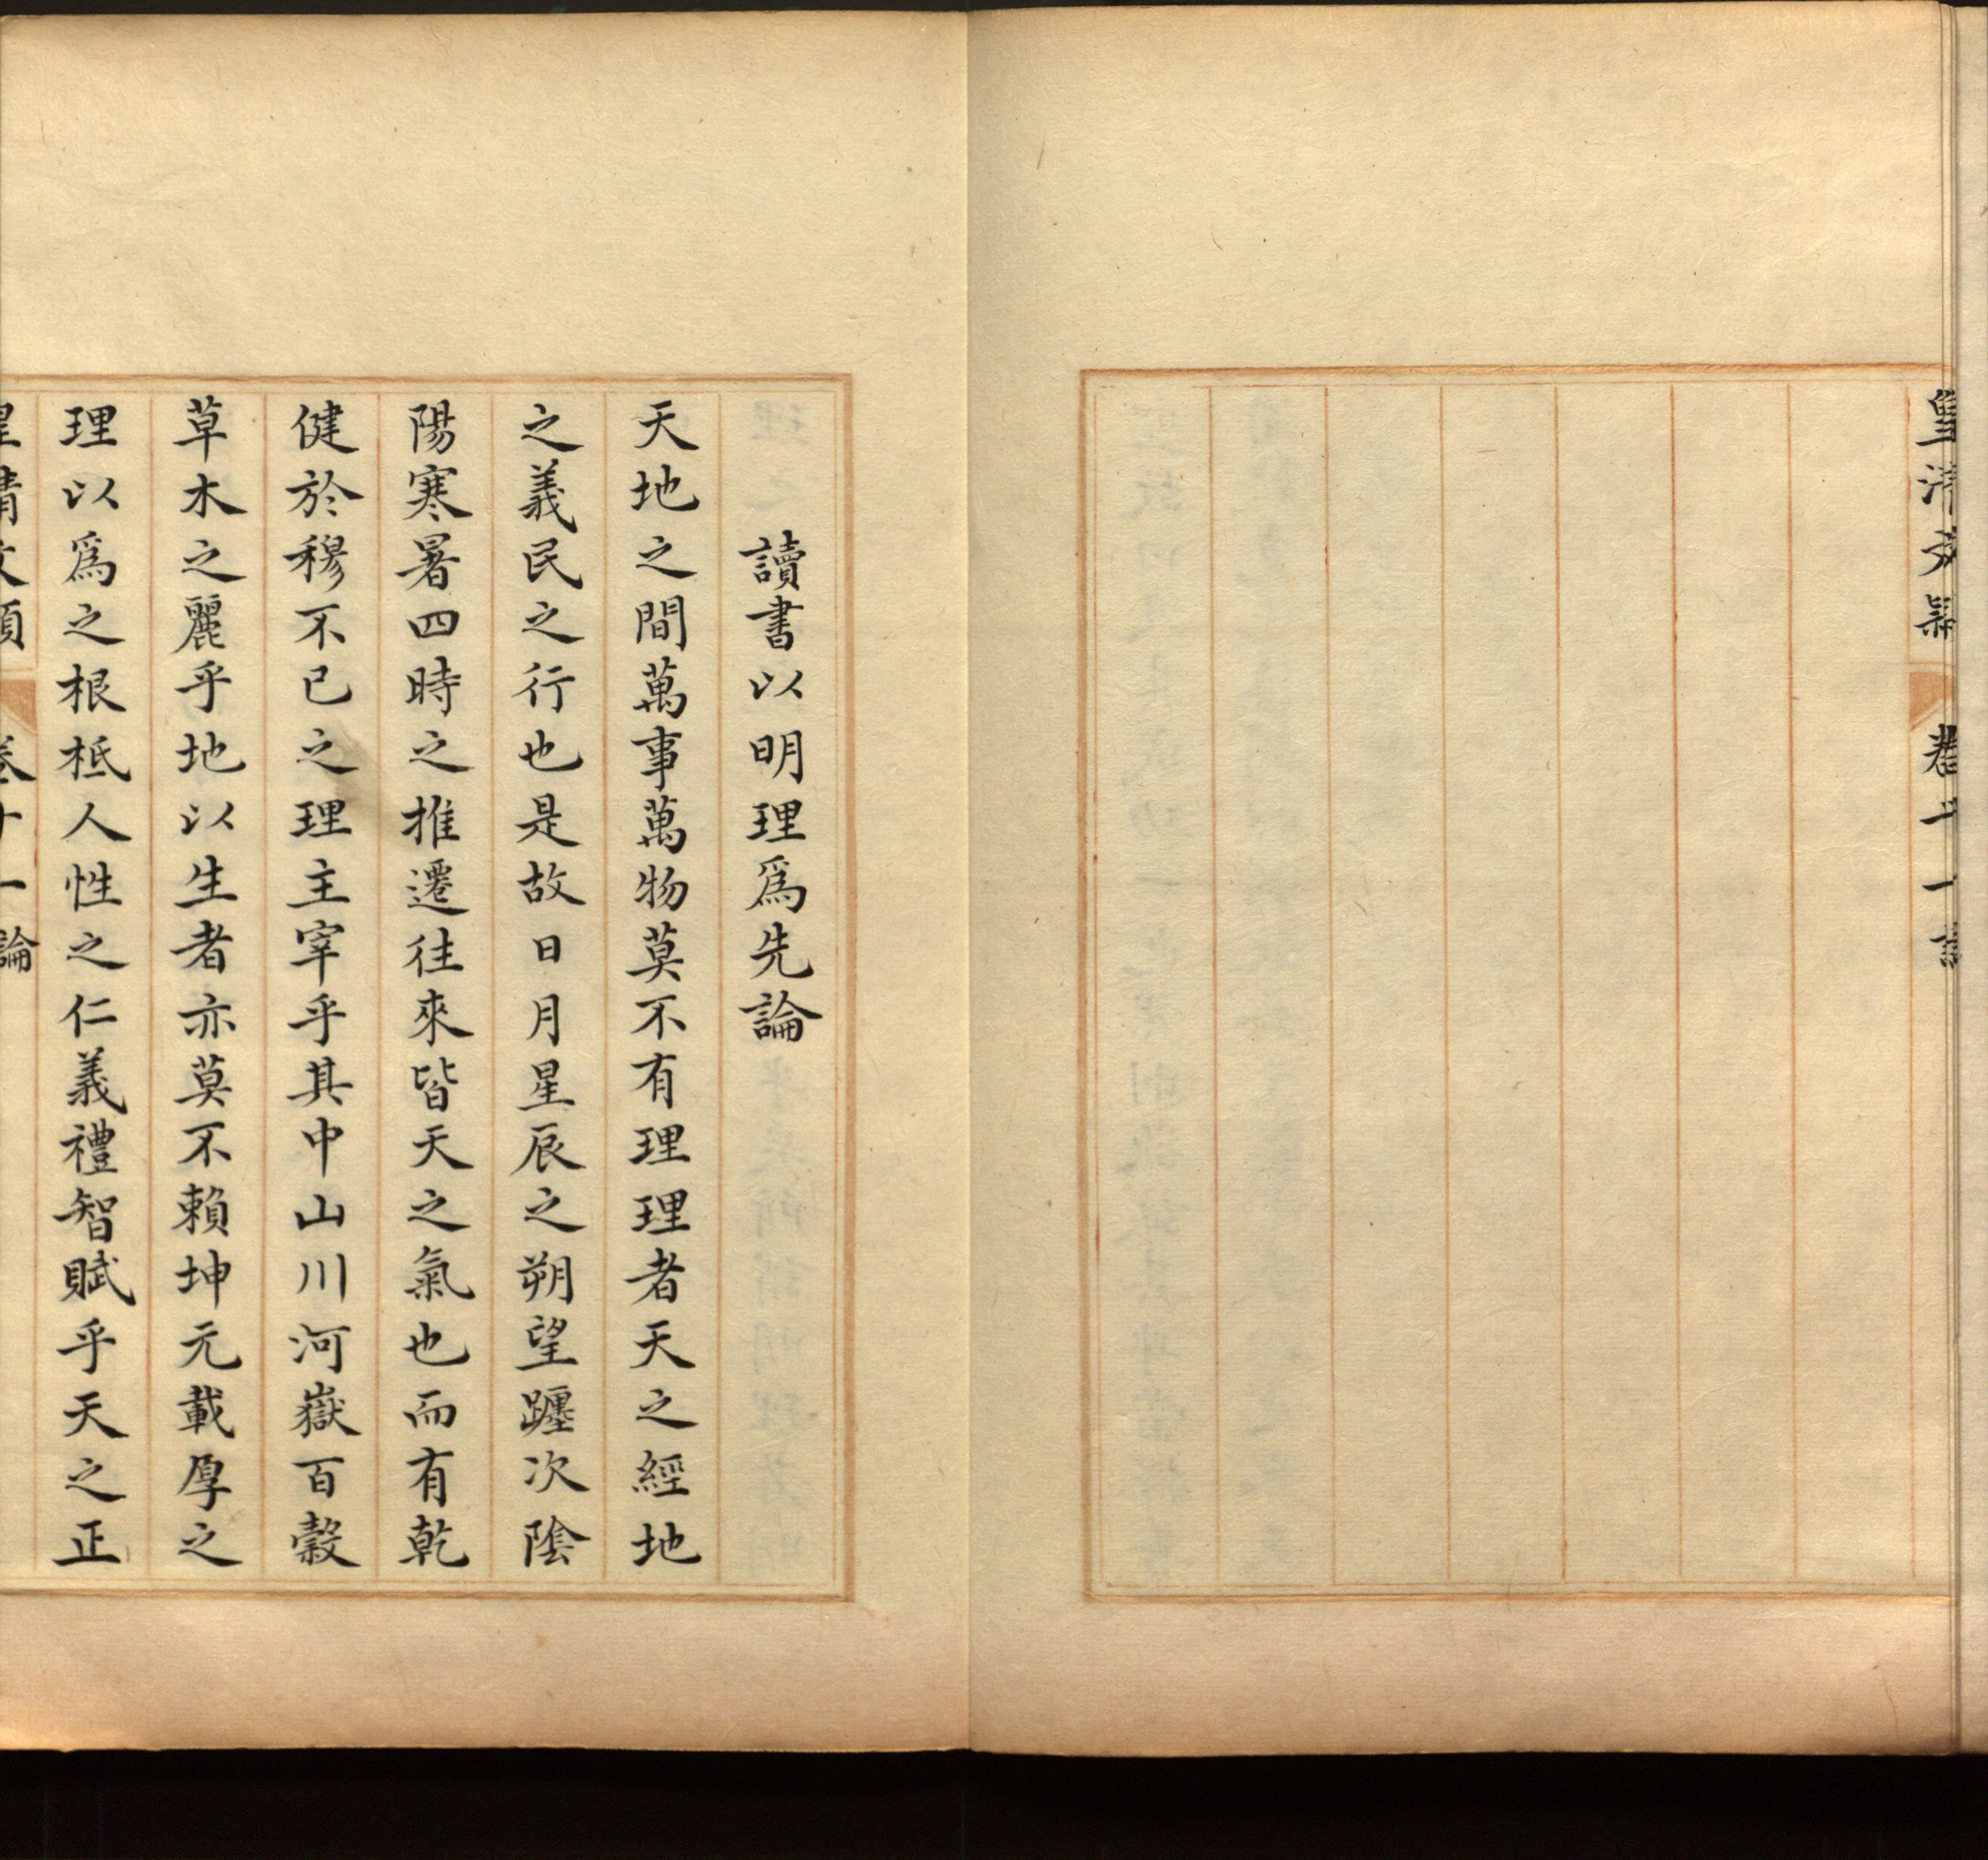 讀書以明理爲先論
天地之間萬事萬物莫不有理理者天之經地
之義民之行也是故日月星辰之朔望躔次陰
陽寒暑四時之推遷往來皆天之氣也而有乾
健於穆不已之理主宰乎其中山川河嶽百穀
草木之麗乎地以生者亦莫不賴坤元載厚之
理以爲之根柢人性之仁義禮智賦乎天之正
皇清文穎 卷十一 論